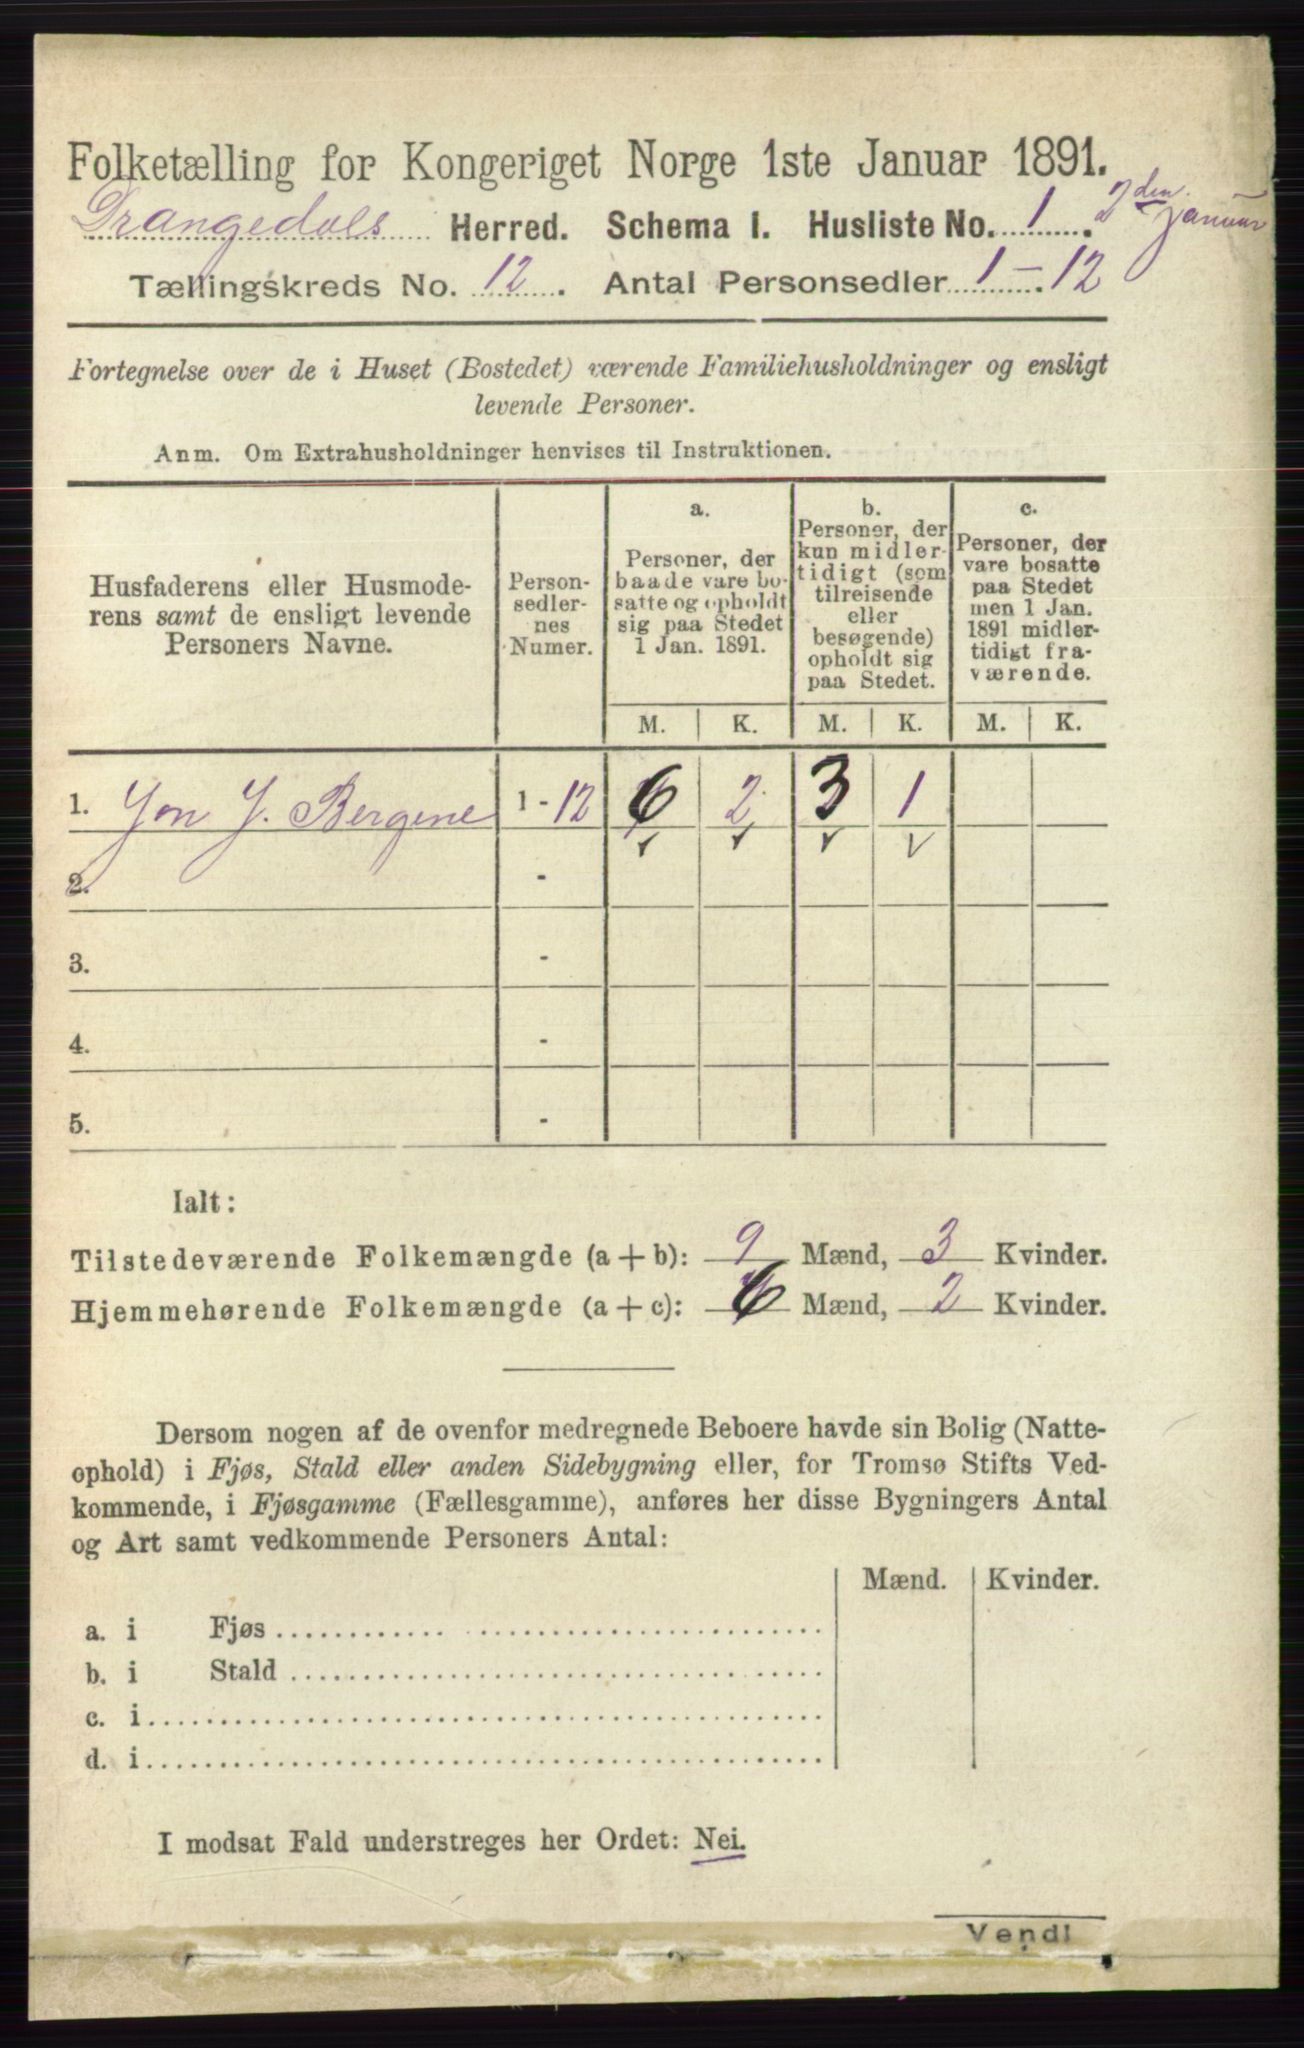 Folketælling for Kongeriget Norge 1ste Januar 1891.
Drangedals Herred. Schema I. Husliste No. 1. 2den Januar
Tællingskreds No. 12. Antal Personsedler 1-12
Fortegnelse over de i Huset (Bostedet) værende Familiehusholdninger og ensligt
levende Personer.
Anm. Om Extrahusholdninger henvises til Instruktionen.
Husfaderens eller Husmode-
rens samt de ensligt levende
Personers Navne.
Person-
sedler-
nes
Numer.
a.
Personer, der
baade vare bo-
satte og opholdt
sig paa Stedet
1 Jan. 1891.
b.
Personer, der
kun midler-
tidigt (som
tilreisende
eller
besøgende)
opholdt sig
paa Stedet.
c.
Personer, der
vare bosatte
paa Stedet
men 1 Jan.
1891 midler-
tidigt fra-
værende.
M. K. M. K. M. K.
1. Jon J. Bergene 1 - 12 6 2 3 1
2. -
3. -
4. -
5. -
Ialt:
Tilstedeværende Folkemængde (a + b): 9 Mænd, 3 Kvinder.
Hjemmehørende Folkemængde (a + c): 6 Mænd, 2 Kvinder.
Dersom nogen af de ovenfor medregnede Beboere havde sin Bolig (Natte-
ophold) i Fjøs, Stald eller anden Sidebygning eller, for Tromsø Stifts Ved-
kommende, i Fjøsgamme (Fællesgamme), anføres her disse Bygningers Antal
og Art samt vedkommende Personers Antal:
Mænd. Kvinder.
a. i Fjøs
b. i Stald
c. i
d. i
I modsat Fald understreges her Ordet: Nei.
Vend!